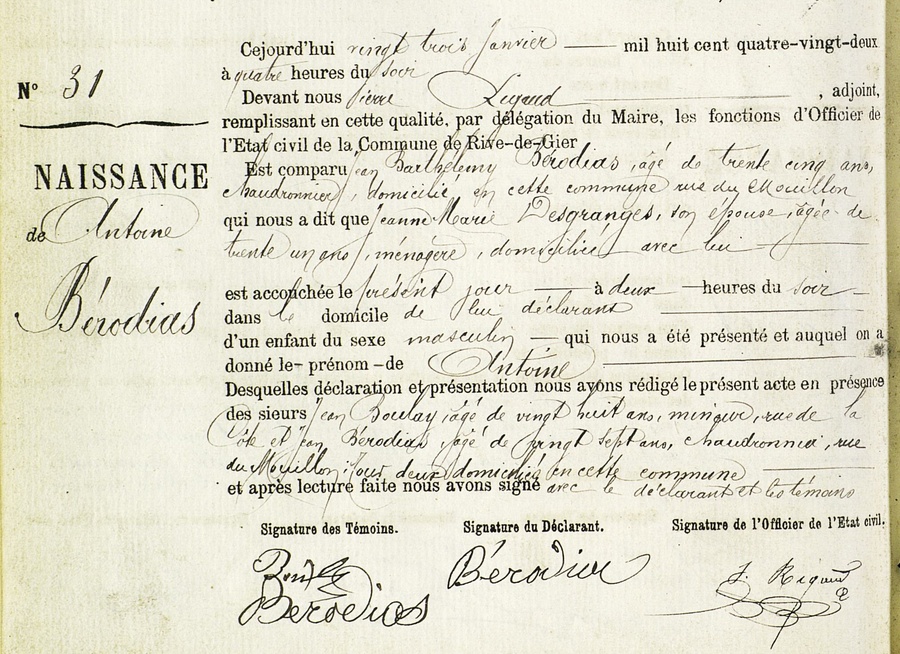 N° 31
NAISSANCE
de Antoine
Bérodias
Cejourd'hui vingt trois Janvier mil huit cent quatre-vingt-deux
à quatre heures du soir
Devant nous Pierre , adjoint,
remplissant en cette qualité, par délégation du Maire, les fonctions d'Officier de
l'Etat civil de la Commune de Rive-de-Gier
Est comparu Jean Barthélemy Bérodias, âgé de trente cinq ans,
chaudronnier, domicilié en cette commune rue du Mouillon
qui nous a dit que Jeanne Marie Desgranges, son épouse, âgée de
trente un ans, ménagère, domiciliée avec lui
est accouchée le présent jour à deux heures du soir
dans le domicile de lui déclarant
d'un enfant du sexe masculin qui nous a été présenté et auquel on a
donné le prénom de Antoine
Desquelles déclaration et présentation nous avons rédigé le présent acte en présence
des sieurs Jean Boulay, âgé de vingt huit ans, mineur, rue de la
Côte et Jean Bérodias, âgé de vingt sept ans, chaudronnier, rue
du Mouillon; tous deux domiciliés en cette commune
et après lecture faite nous avons signé avec le déclarant et les témoins
Signature des Témoins. Signature du Déclarant. Signature de l'Officier de l'Etat civil.
Bérodias
Bérodias